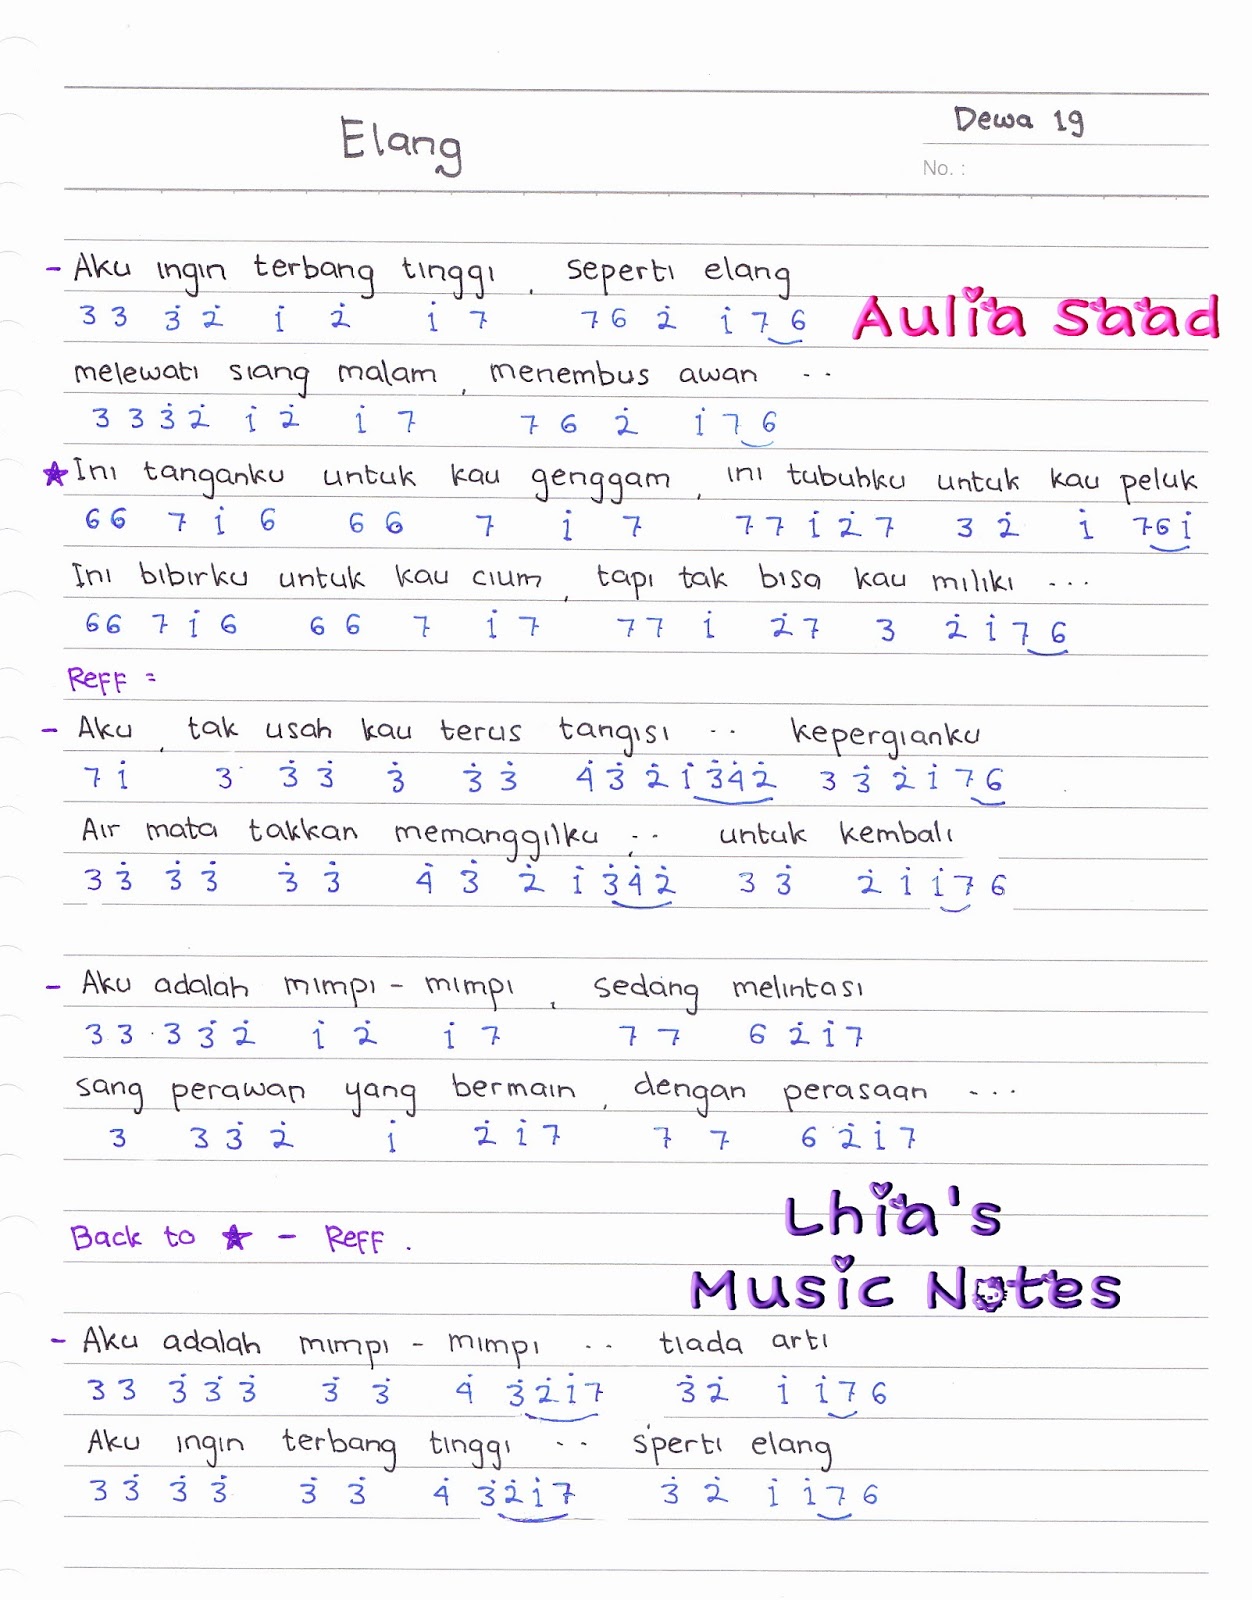 Elang
Dewa 19
No. :
- Aku ingin terbang tinggi , seperti elang
3 3 3̇ 2̇ 1̇ 2̇ 1̇ 7 7 6 2̇ 1̇ 7 6
Aulia Saad
melewati siang malam , menembus awan ..
3 3 3̇ 2̇ 1̇ 2̇ 1̇ 7 7 6 2̇ 1̇ 7 6
★ Ini tanganku untuk kau genggam , ini tubuhku untuk kau peluk
6 6 7 1̇ 6 6 6 7 1̇ 7 7 7 1̇ 2̇ 7 3 2̇ 1̇ 7 6 1̇
Ini bibirku untuk kau cium , tapi tak bisa kau miliki ...
6 6 7 1̇ 6 6 6 7 1̇ 7 7 7 1̇ 2̇ 7 3 2̇ 1̇ 7 6
Reff =
- Aku , tak usah kau terus tangisi .. kepergianku
7 1̇ 3 3̇ 3̇ 3̇ 3̇ 3̇ 4̇ 3̇ 2̇ 1̇ 3̇ 4̇ 2̇ 3 3̇ 2̇ 1̇ 7 6
Air mata takkan memanggilku .. , untuk kembali
3 3̇ 3̇ 3̇ 3̇ 3̇ 4̇ 3̇ 2̇ 1̇ 3̇ 4̇ 2̇ 3 3̇ 2̇ 1̇ 1̇ 7 6
- Aku adalah mimpi - mimpi , sedang melintasi
3 3 . 3 3̇ 2̇ 1̇ 2̇ 1̇ 7 7 7 6 2̇ 1̇ 7
sang perawan yang bermain , dengan perasaan ...
3 3 3̇ 2̇ 1̇ 2̇ 1̇ 7 7 7 6 2̇ 1̇ 7
Lhia's
Back to ★ - Reff .
Music Notes
- Aku adalah mimpi - mimpi .. tiada arti
3 3 3̇ 3̇ 3̇ 3̇ 3̇ 4̇ 3̇ 2̇ 1̇ 7 3̇ 2̇ 1̇ 1̇ 7 6
Aku ingin terbang tinggi .. s'perti elang
3 3̇ 3̇ 3̇ 3̇ 3̇ 4̇ 3̇ 2̇ 1̇ 7 3̇ 2̇ 1̇ 1̇ 7 6